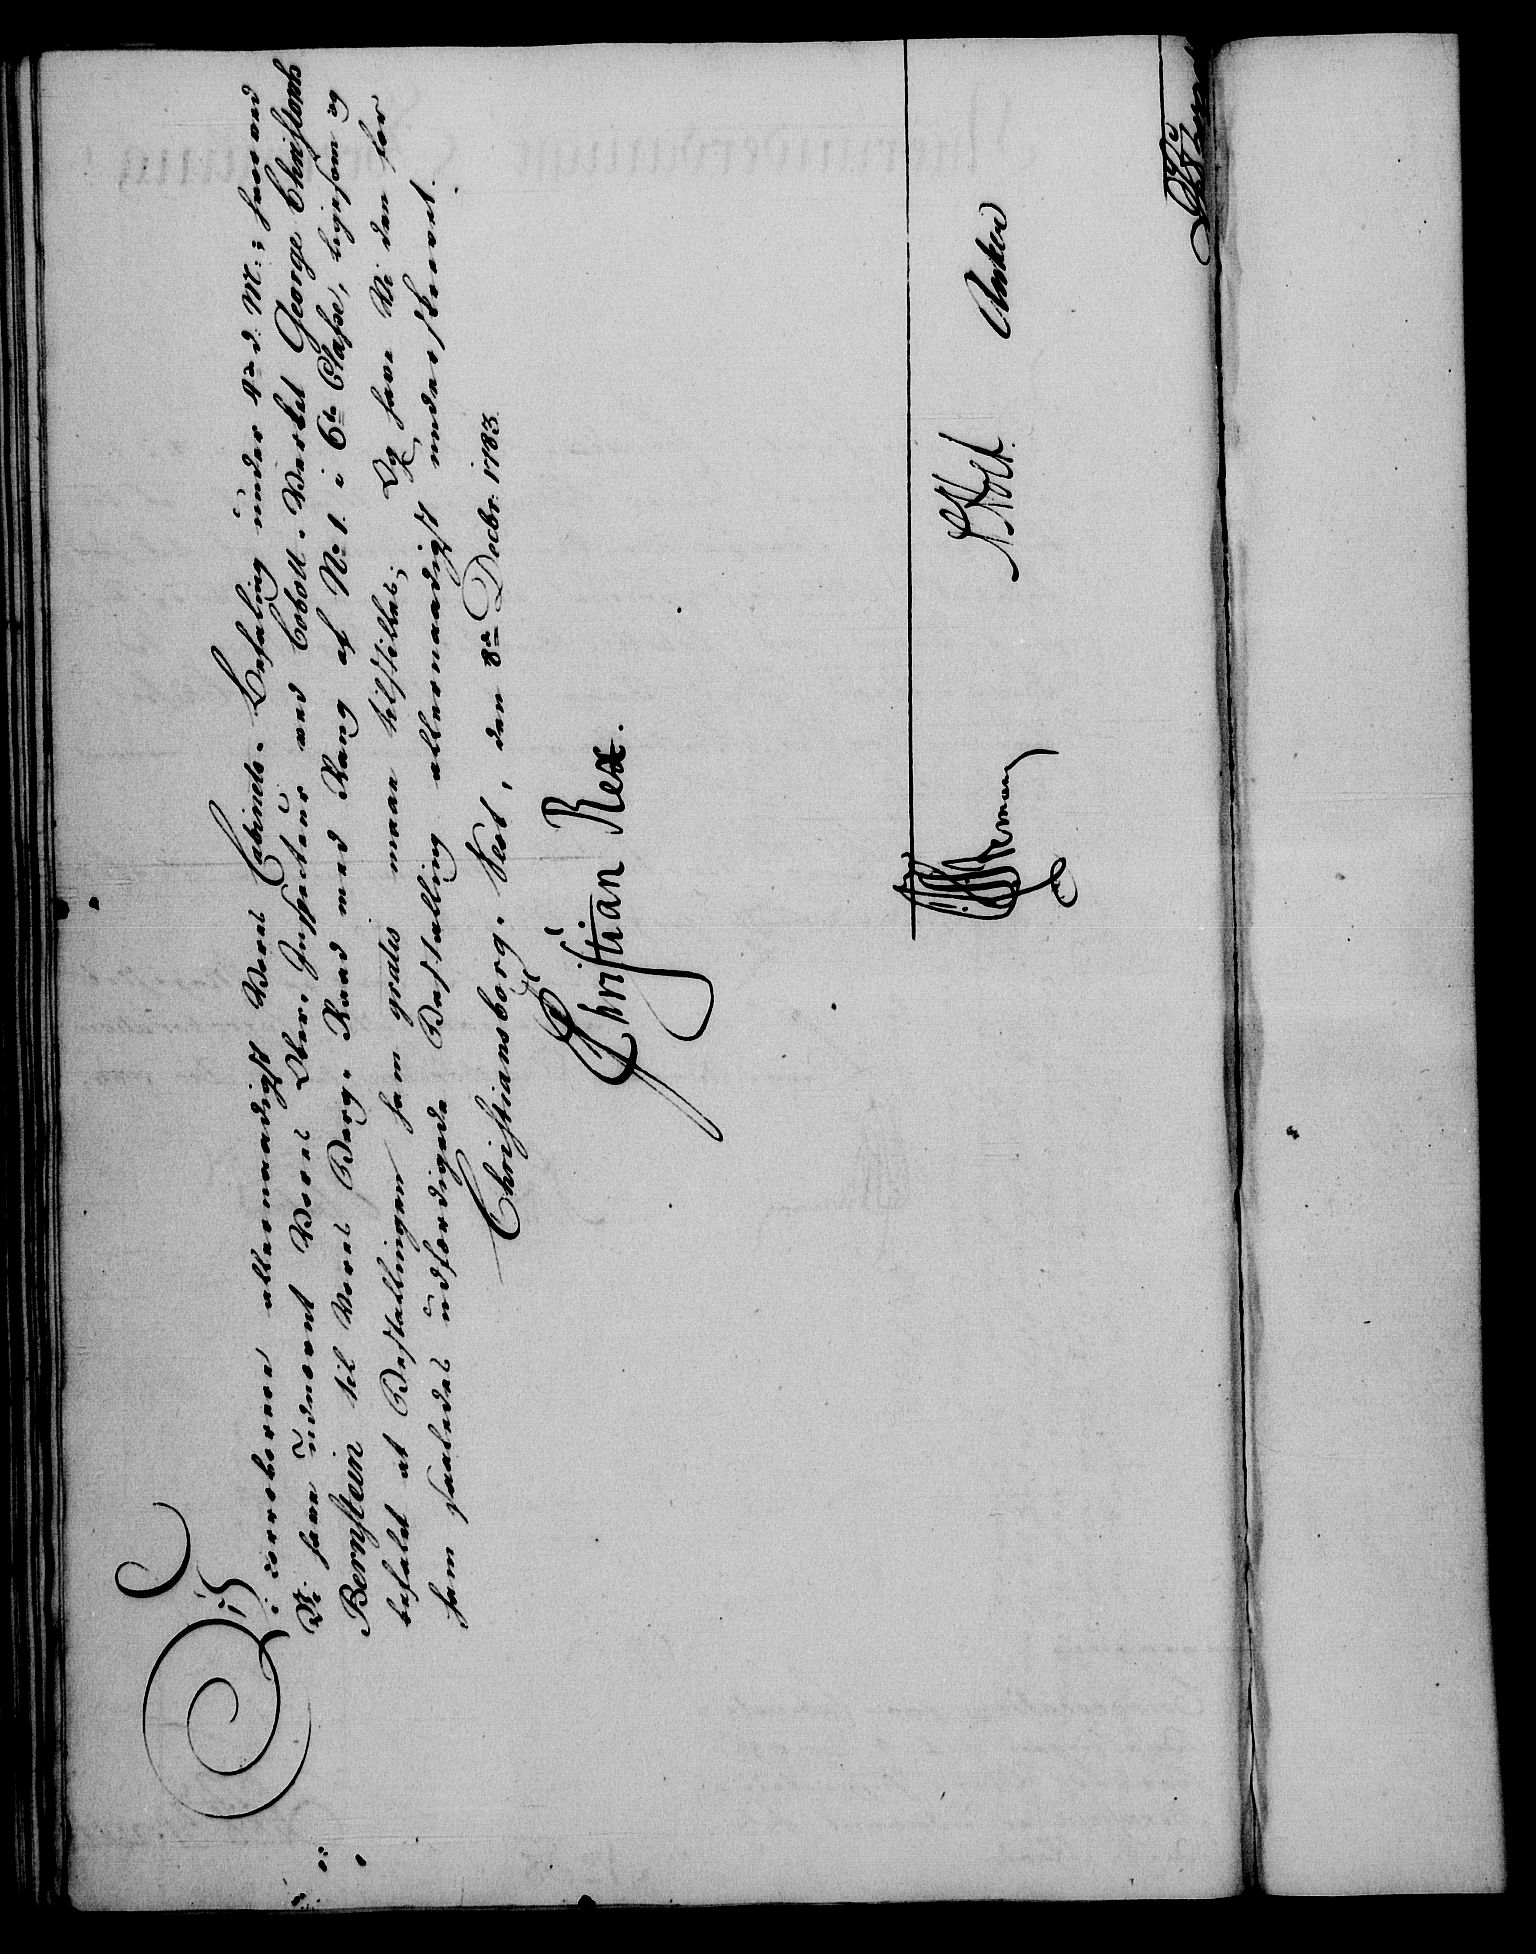 Vi corroborere allernaadigst Vores Cabinets-Befaling under 4de d: M:, hvorved
Vi have udnævnt Vores Ober-Inspecteur ved Cobolt-Verket George Christoph
Bernstein til Vores Berg-Raad med Rang af No 1. i 6te Classe, ligesom og
befalet at Bestallingen ham gratis maae tilstilles; Og have Vi den for
ham saaledes udfærdigede Bestalling allernaadigst underskrevet.
Christiansborg-Slot, den 8de Decbr. 1783.
Christian Rex.
Holt. Anker